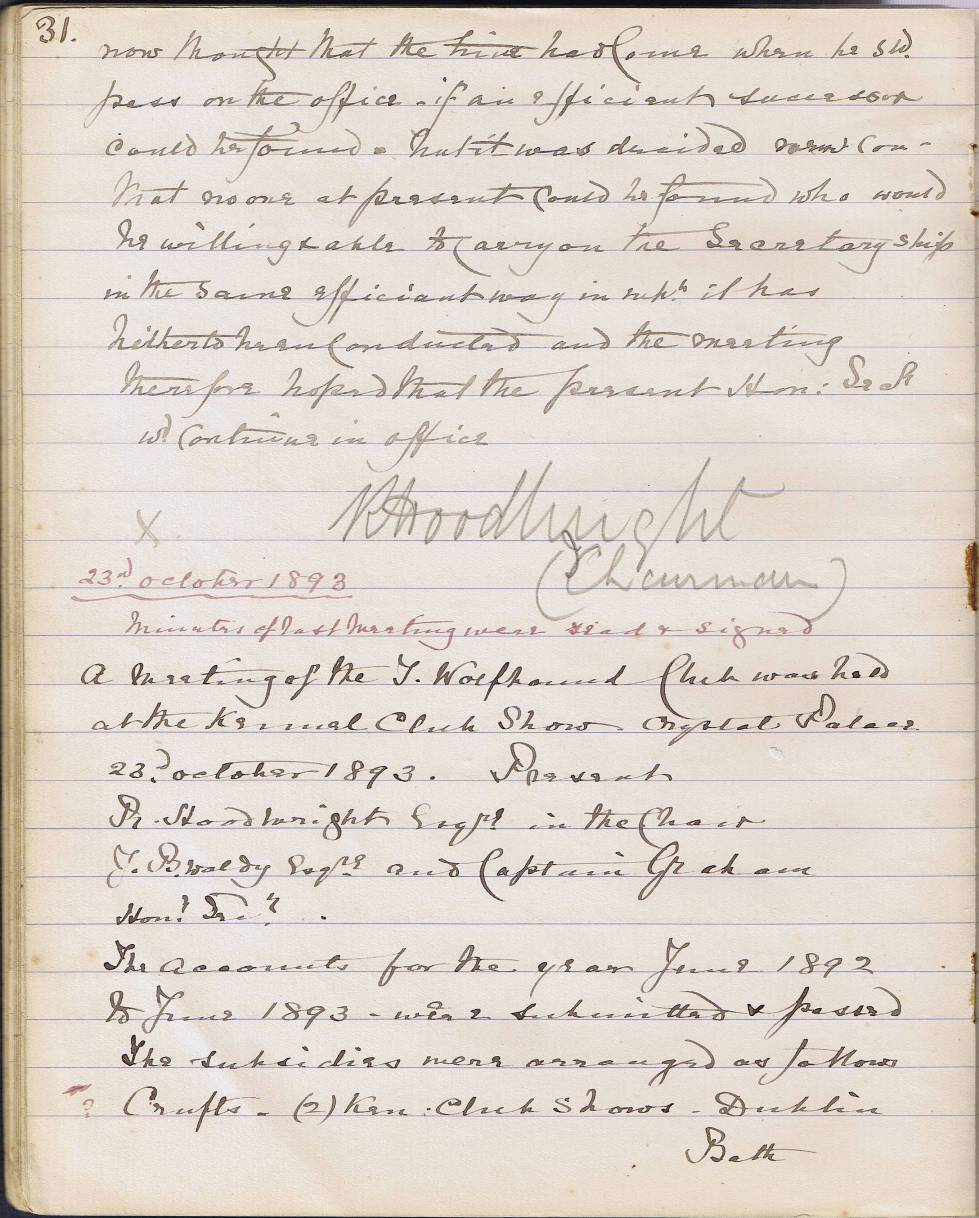 31.
now thought that the time had come when he shd.
pass on the office - if an efficient successor
could be found - but it was decided nem: con -
that no one at present could be found who would
be willing & able to carry on the Secretaryship
in the same efficient way in wh.h it has
hitherto been conducted and the meeting
therefore hoped that the present Hon: Sec
wd continue in office
R Hood Wright
(Chairman)
X
23rd october 1893
Minutes of last meeting were read & signed
A meeting of the I. Wolfhound Club was held
at the Kennel Club Show Crystal Palace
23rd october 1893. Present
R. Hood Wright Esqre in the Chair
J. B. Waldy Esqre and Captain Graham
Hon:
The accounts for the year June 1892
to June 1893 - were submitted & passed
The subsidies were arranged as follows
? Crufts - (2) Ken: Club Shows - Dublin
Bath